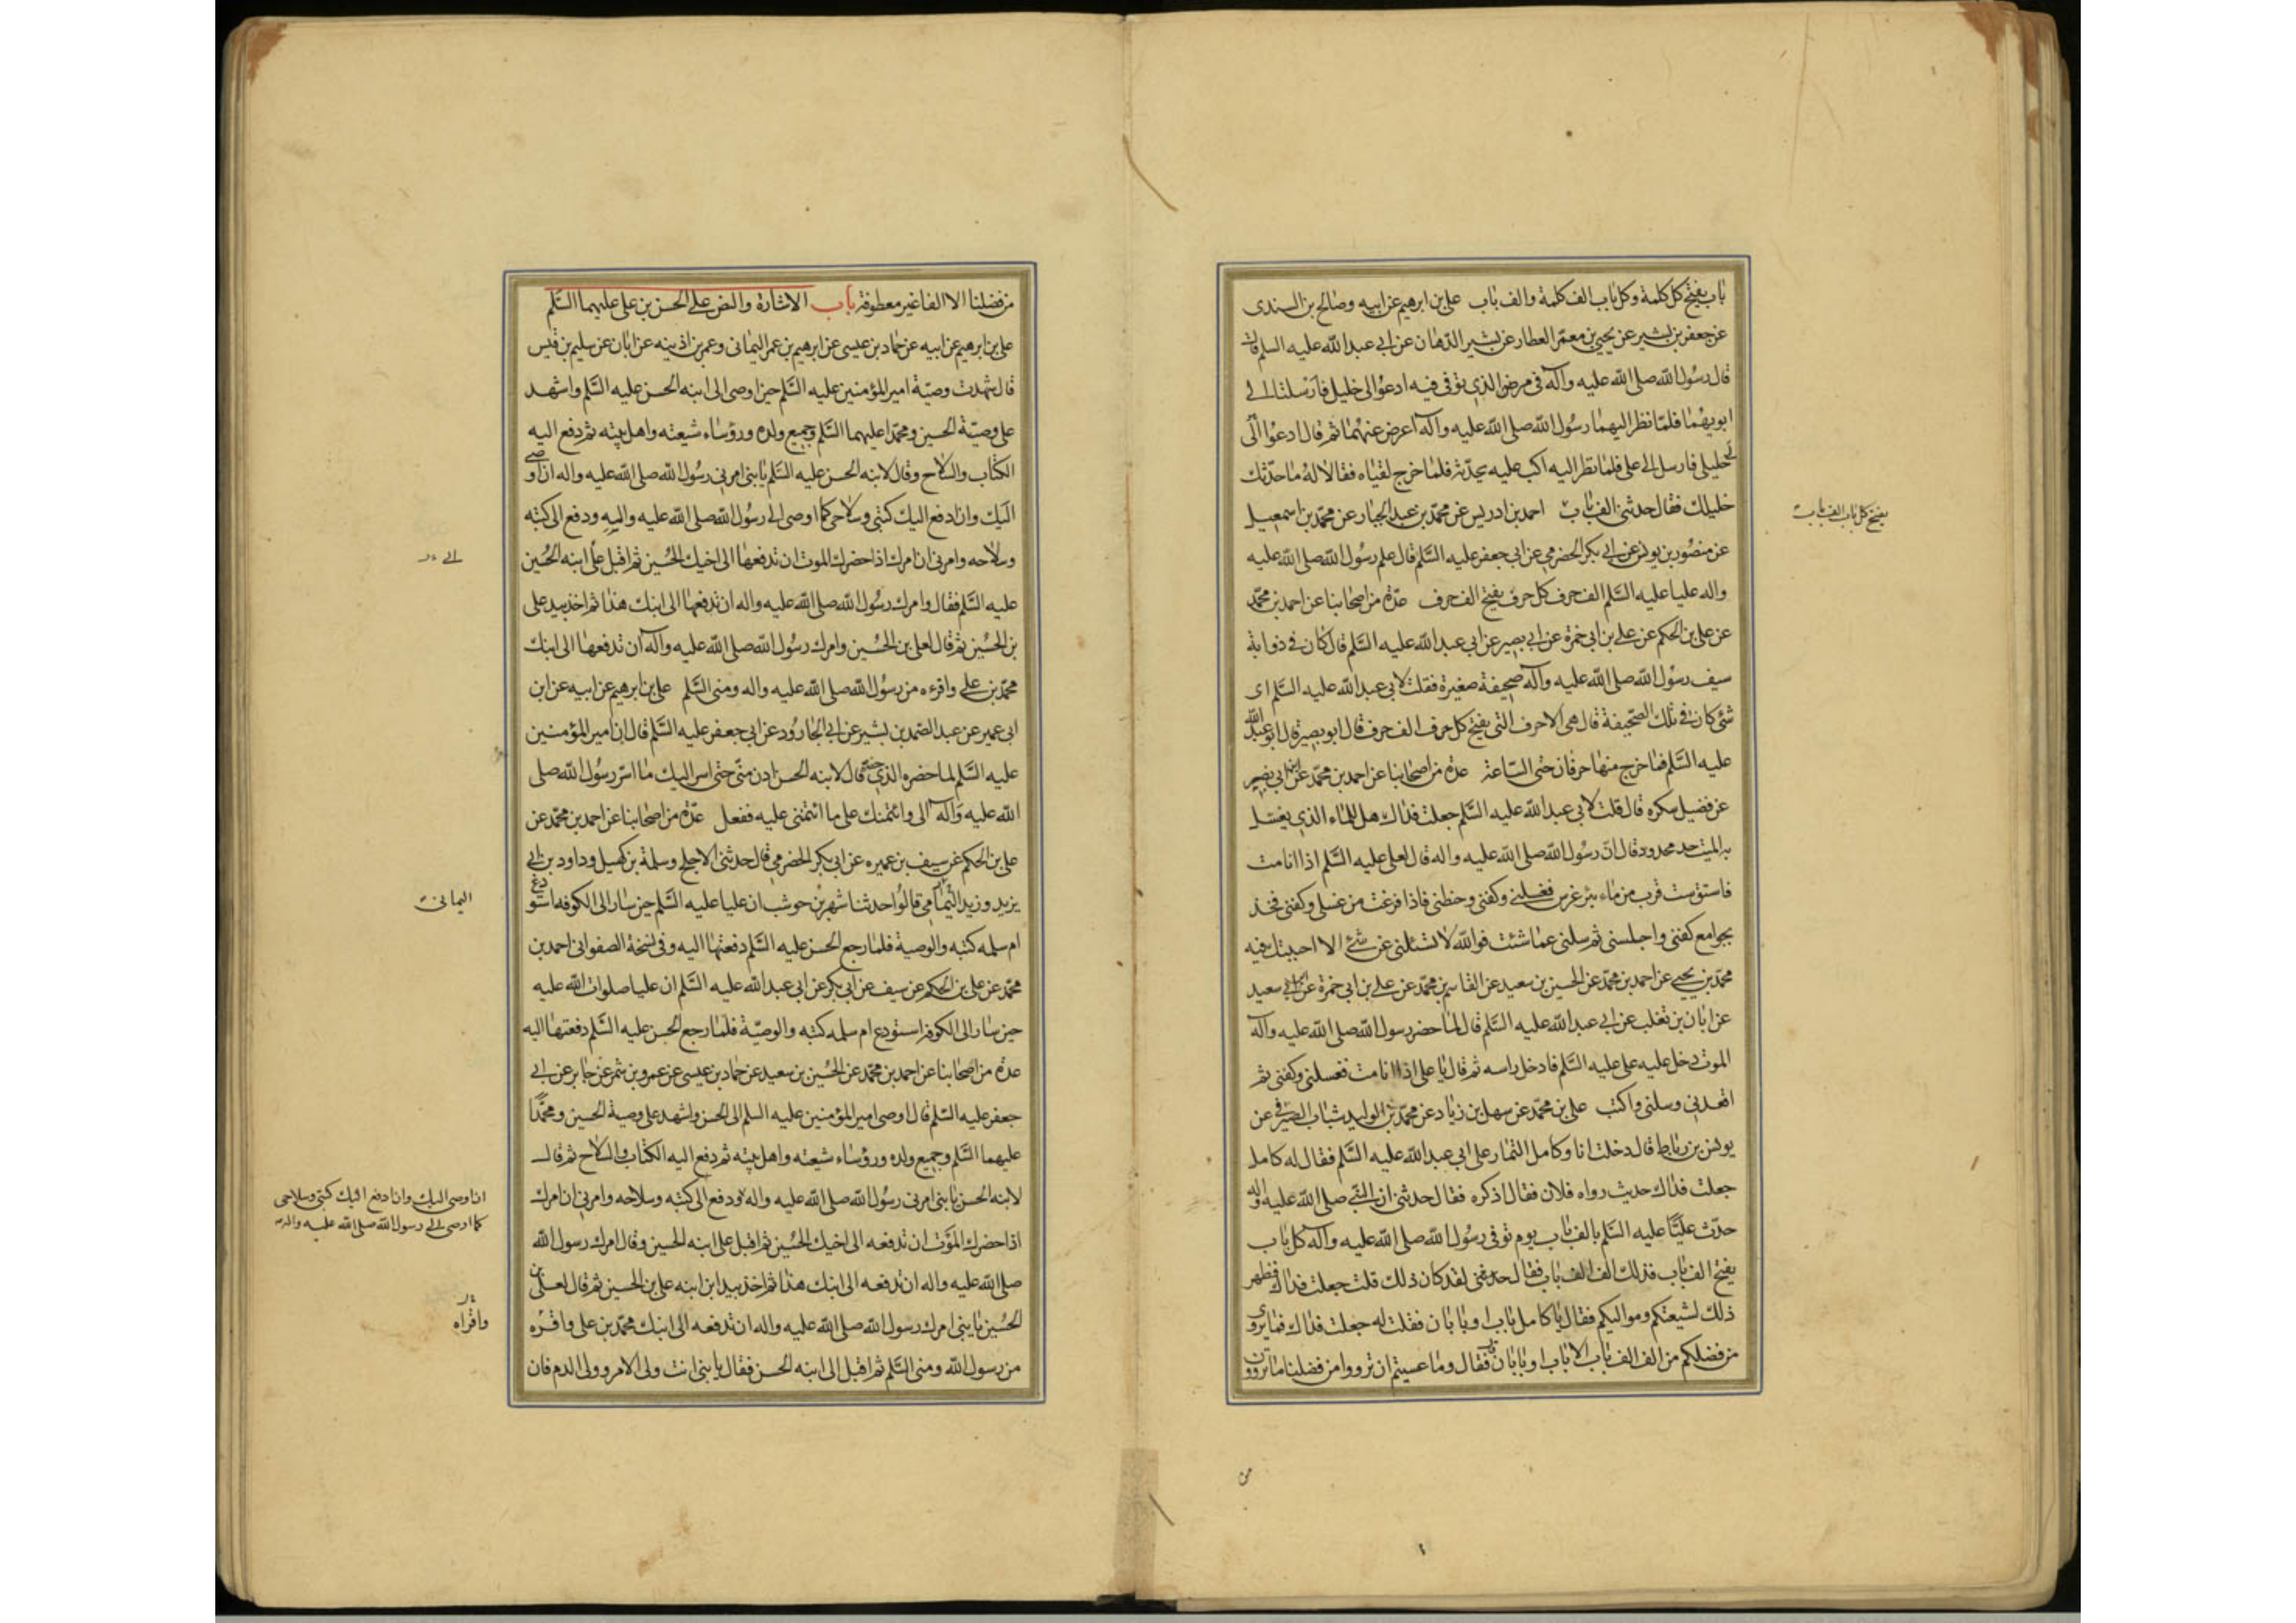 باب يفتح كل كلمة وكل باب الف كلمة والف باب علي بن ابرهيم عن ابيه وصالح بن السندى
عن جعفر بن بشير عن يحيى بن معمّر العطار عن بشير الدّهان عن ابي عبد الله عليه السلم قال
قال رسُول الله صلى الله عليه وآله في مرضه الذي توفى فيه ادعُوا لى خليلى فارسلتا الى
ابويهُما فلمّا نظر اليهما رسُول الله صلى الله عليه وآله اعرض عنهُما ثم قال ادعُوا الىّ
لي خليلى فارسل الى على فلما نظر اليه اكب عليه يحدّثه فلما خرج لقياه فقالا لهُ ما حدّثك
خليلك فقال حدثنى الف باب احمد بن ادريس عن محمّد بن عبد الجبار عن محمّد بن اسمعيل
يفتح كل باب الف باب
عن منصُور بن يونس عن ابي بكر الحضرمي عن ابي جعفر عليه السَّلم قال علم رسُول الله صلى الله عليه
واله عليا عليه السَّلم الف حرف كل حرف يفتح الف حرف عدّة من اصحابنا عن احمد بن محمّد
عن على بن الحكم عن علي بن ابي حمزة عن ابي بصير عن ابي عبد الله عليه السَّلم قال كان في ذوابة
سيف رسُول الله صلى الله عليه وآله صحيفة صغيرة فقلت لابي عبد الله عليه السَّلم اى
شئ كان في تلك الصّحيفة قال هى الاحرف التى يفتح كل حرف الف حرف قال ابو بصير قال ابو عبد الله
عليه السَّلم فما خرج منها حرفان حتى السّاعة عدة من اصحابنا عن احمد بن محمّد عن ابن ابي نصر
عن فضيل سكره قال قلت لابي عبد الله عليه السَّلم جعلت فداك هل للماء الذي يغسل
به الميت حد محدود قال انّ رسُول الله صلى الله عليه واله قال لعلى عليه السَّلم اذا انا مت
فاستق ست قرب من ماء بئر غرس فغسلنى وكفنى وحنطنى فاذا فرغت من غسلى وكفنى فخذ
بجوامع كفنى واجلسنى ثم سلنى عما شئت فوالله لا تسئلنى عن شئ الا اجبتك فيه
محمّد بن يحيى عن احمد بن محمّد عن الحسين بن سعيد عن القاسم بن محمّد عن علي بن ابي حمزة عن ابن ابي سعيد
عن ابان بن تغلب عن ابي عبد الله عليه السَّلم قال لما حضر رسول الله صلى الله عليه وآله
الموت دخل عليه على عليه السَّلم فادخل راسه ثم قال يا على اذا انا مت فغسلنى وكفنى ثم
اقعدنى وسلنى واكتب على بن محمّد عن سهل بن زياد عن محمّد بن الوليد شباب الصيرفي عن
يونس بن رباط قال دخلت انا وكامل التمار على ابي عبد الله عليه السَّلم فقال له كامل
جعلت فداك حديث رواه فلان فقال اذكره فقال حدثنى ان النّبي صلى الله عليه واله
حدّث عليًّا عليه السَّلم بالف باب يوم توفى رسُول الله صلى الله عليه وآله كل باب
يفتح الف باب فذلك الف الف باب فقال لقد كان ذلك قلت جعلت فداك فظهر
ذلك لشيعتكم ومواليكم فقال يا كامل باب او بابان فقلت له جعلت فداك فما يروى
من فضلكم من الف الف باب الا باب او بابان قال فقال وما عسيتم ان ترووا من فضلنا ما تروون
من فضلنا الا الفا غير معطوفة باب الاشارة والنص على الحسن بن على عليهما السَّلم
على بن ابرهيم عن ابيه عن حماد بن عيسى عن ابرهيم بن عمر اليمانى وعمر بن اذينه عن ابان عن سليم بن قيس
قال شهدت وصيّة امير المؤمنين عليه السَّلم حين اوصى الى ابنه الحسن عليه السَّلم واشهد
على وصيّة الحسين ومحمّدا عليهما السَّلم وجميع ولده ورؤساء شيعته واهل بيته ثم دفع اليه
الكتاب والسلاح وقال لابنه الحسن عليه السَّلم يا بنى امرنى رسُول الله صلى الله عليه واله ان اوصى
اليك وان ادفع اليك كتبى وسلاحى كما اوصى الى رسُول الله صلى الله عليه واله ودفع الى كتبه
وسلاحه وامرنى ان امرك اذا حضرك الموت ان تدفعها الى اخيك الحُسين ثم اقبل على ابنه الحُسين
عليه السَّلم فقال وامرك رسُول الله صلى الله عليه واله ان تدفعها الى ابنك هذا ثم اخذ بيد على
بن الحُسين ثم قال لعلى بن الحُسين وامرك رسُول الله صلى الله عليه وآله ان تدفعها الى ابنك
محمّد بن علي واقرءه من رسُول الله صلى الله عليه واله ومنى السَّلم على بن ابرهيم عن ابيه عن ابن
ابي عمير عن عبد الصّمد بن بشير عن ابي الجارُود عن ابي جعفر عليه السَّلم قال ان امير المؤمنين
عليه السَّلم لما حضره الذي حضره قال لابنه الحسن ادن منّى حتى اسر اليك ما اسرّ رسُول الله صلى
الله عليه وآله الى وائتمنك على ما ائتمننى عليه ففعل عدّة من اصحابنا عن احمد بن محمّد عن
على بن الحكم عن سيف بن عميره عن ابي بكر الحضرمي قال حدثنى الاجلح وسلمة بن كهيل وداود بن ابي
يزيد وزيد اليمامي قالوُا حدثنا شهر بن حوشب ان عليا عليه السَّلم حين سار الى الكوفه استودع
اليمانى
ام سلمه كتبه والوصية فلما رجع الحسن عليه السَّلم دفعتها اليه وفى نسخة الصفوانى احمد بن
محمّد عن على بن الحكم عن سيف عن ابي بكر عن ابي عبد الله عليه السَّلم ان عليا صلوات الله عليه
حين سار الى الكوفه استودع ام سلمه كتبه والوصيّة فلما رجع الحسن عليه السَّلم دفعتها اليه
عدة من اصحابنا عن احمد بن محمّد عن الحُسين بن سعيد عن حماد بن عيسى عن عمرو بن شمر عن جابر عن ابي
جعفر عليه السَّلم قال اوصى امير المؤمنين عليه السلم الى الحسن واشهد على وصية الحسين ومحمّدًا
عليهما السَّلم وجميع ولده ورؤساء شيعته واهل بيته ثم دفع اليه الكتاب والسلاح ثم قال
لابنه الحسن يا بنى امرنى رسُول الله صلى الله عليه واله ودفع الى كتبه وسلاحه وامرنى ان امرك
ان اوصى اليك وان ادفع اليك كتبى وسلاحى
كما اوصى الى رسول الله صلى الله عليه واله
اذا حضرك الموَت ان تدفعه الى اخيك الحُسين ثم اقبل على ابنه الحسين وقال امرك رسول الله
صلى الله عليه واله ان تدفعه الى ابنك هذا ثم اخذ بيد ابن ابنه على بن الحسين ثم قال لعلى بن
الحُسين يا بنى امرك رسول الله صلى الله عليه واله ان تدفعه الى ابنك محمّد بن على واقرئه
واقراه
من رسول الله ومنى السَّلم ثم اقبل الى ابنه الحسن فقال يا بنى انت ولى الامر وولى الدم فان